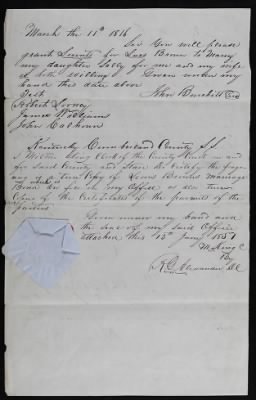 March the 11th 1816
Sir You will please
grant License for Lewis Bower to Marry
my daughter Sally for me and my wife
is both willing Given under my
hand this date above
Test John Burchitt
Robert Lorney
James
John Calhoun
Kentucky Cumberland County SS
I Milton King Clerk of the County Court in and
for said County and State do Certify the forego
ing is a true Copy of Lewis Marriage
Bond on file in my Office as also true
Copies of the Certificates of the parents of the
parties
Given under my hand and
the seal of my said Office
attached this 13th Jany 1857
M King C
By
R G Alexander DC